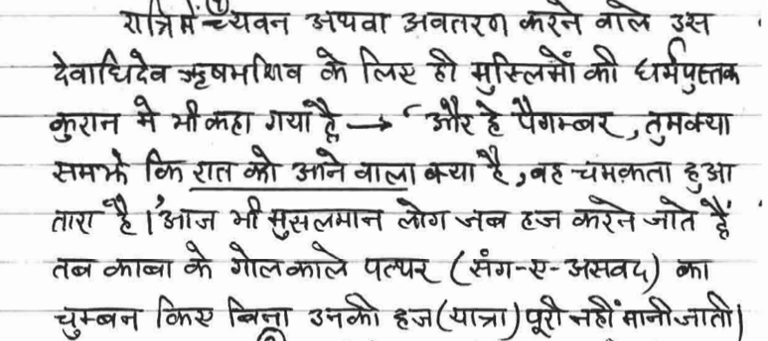 रात्रि में च्यवन अथवा अवतरण करने वाले उस
देवाधिदेव ऋषभशिव के लिए ही मुस्लिमों की धर्मपुस्तक
कुरान में भी कहा गया है → 'और हे पैगम्बर, तुम क्या
समझे कि रात को आने वाला क्या है, वह चमकता हुआ
तारा है।' आज भी मुसलमान लोग जब हज करने जाते हैं
तब काबा के गोल काले पत्थर (संग-ए-असवद) का
चुम्बन किए बिना उनकी हज (यात्रा) पूरी नहीं मानी जाती।